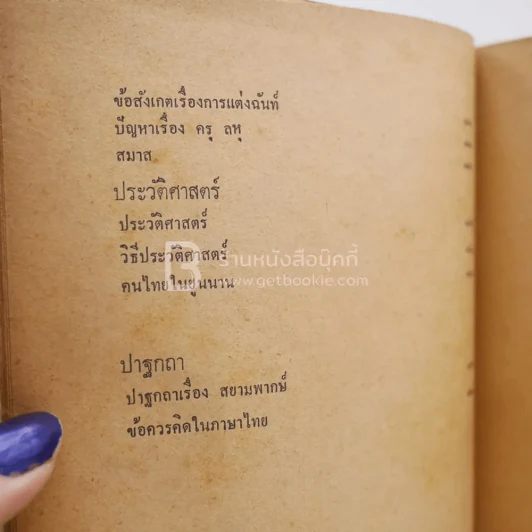 ข้อสังเกตเรื่องการแต่งฉันท์
ปัญหาเรื่อง ครุ ลหุ
สมาส
ประวัติศาสตร์
ประวัติศาสตร์
วิธีประวัติศาสตร์
คนไทยในยูนนาน
ร้านหนังสือบุ๊คกี้
www.getbookie.com
ปาฐกถา
ปาฐกถาเรื่อง สยามพากษ์
ข้อควรคิดในภาษาไทย